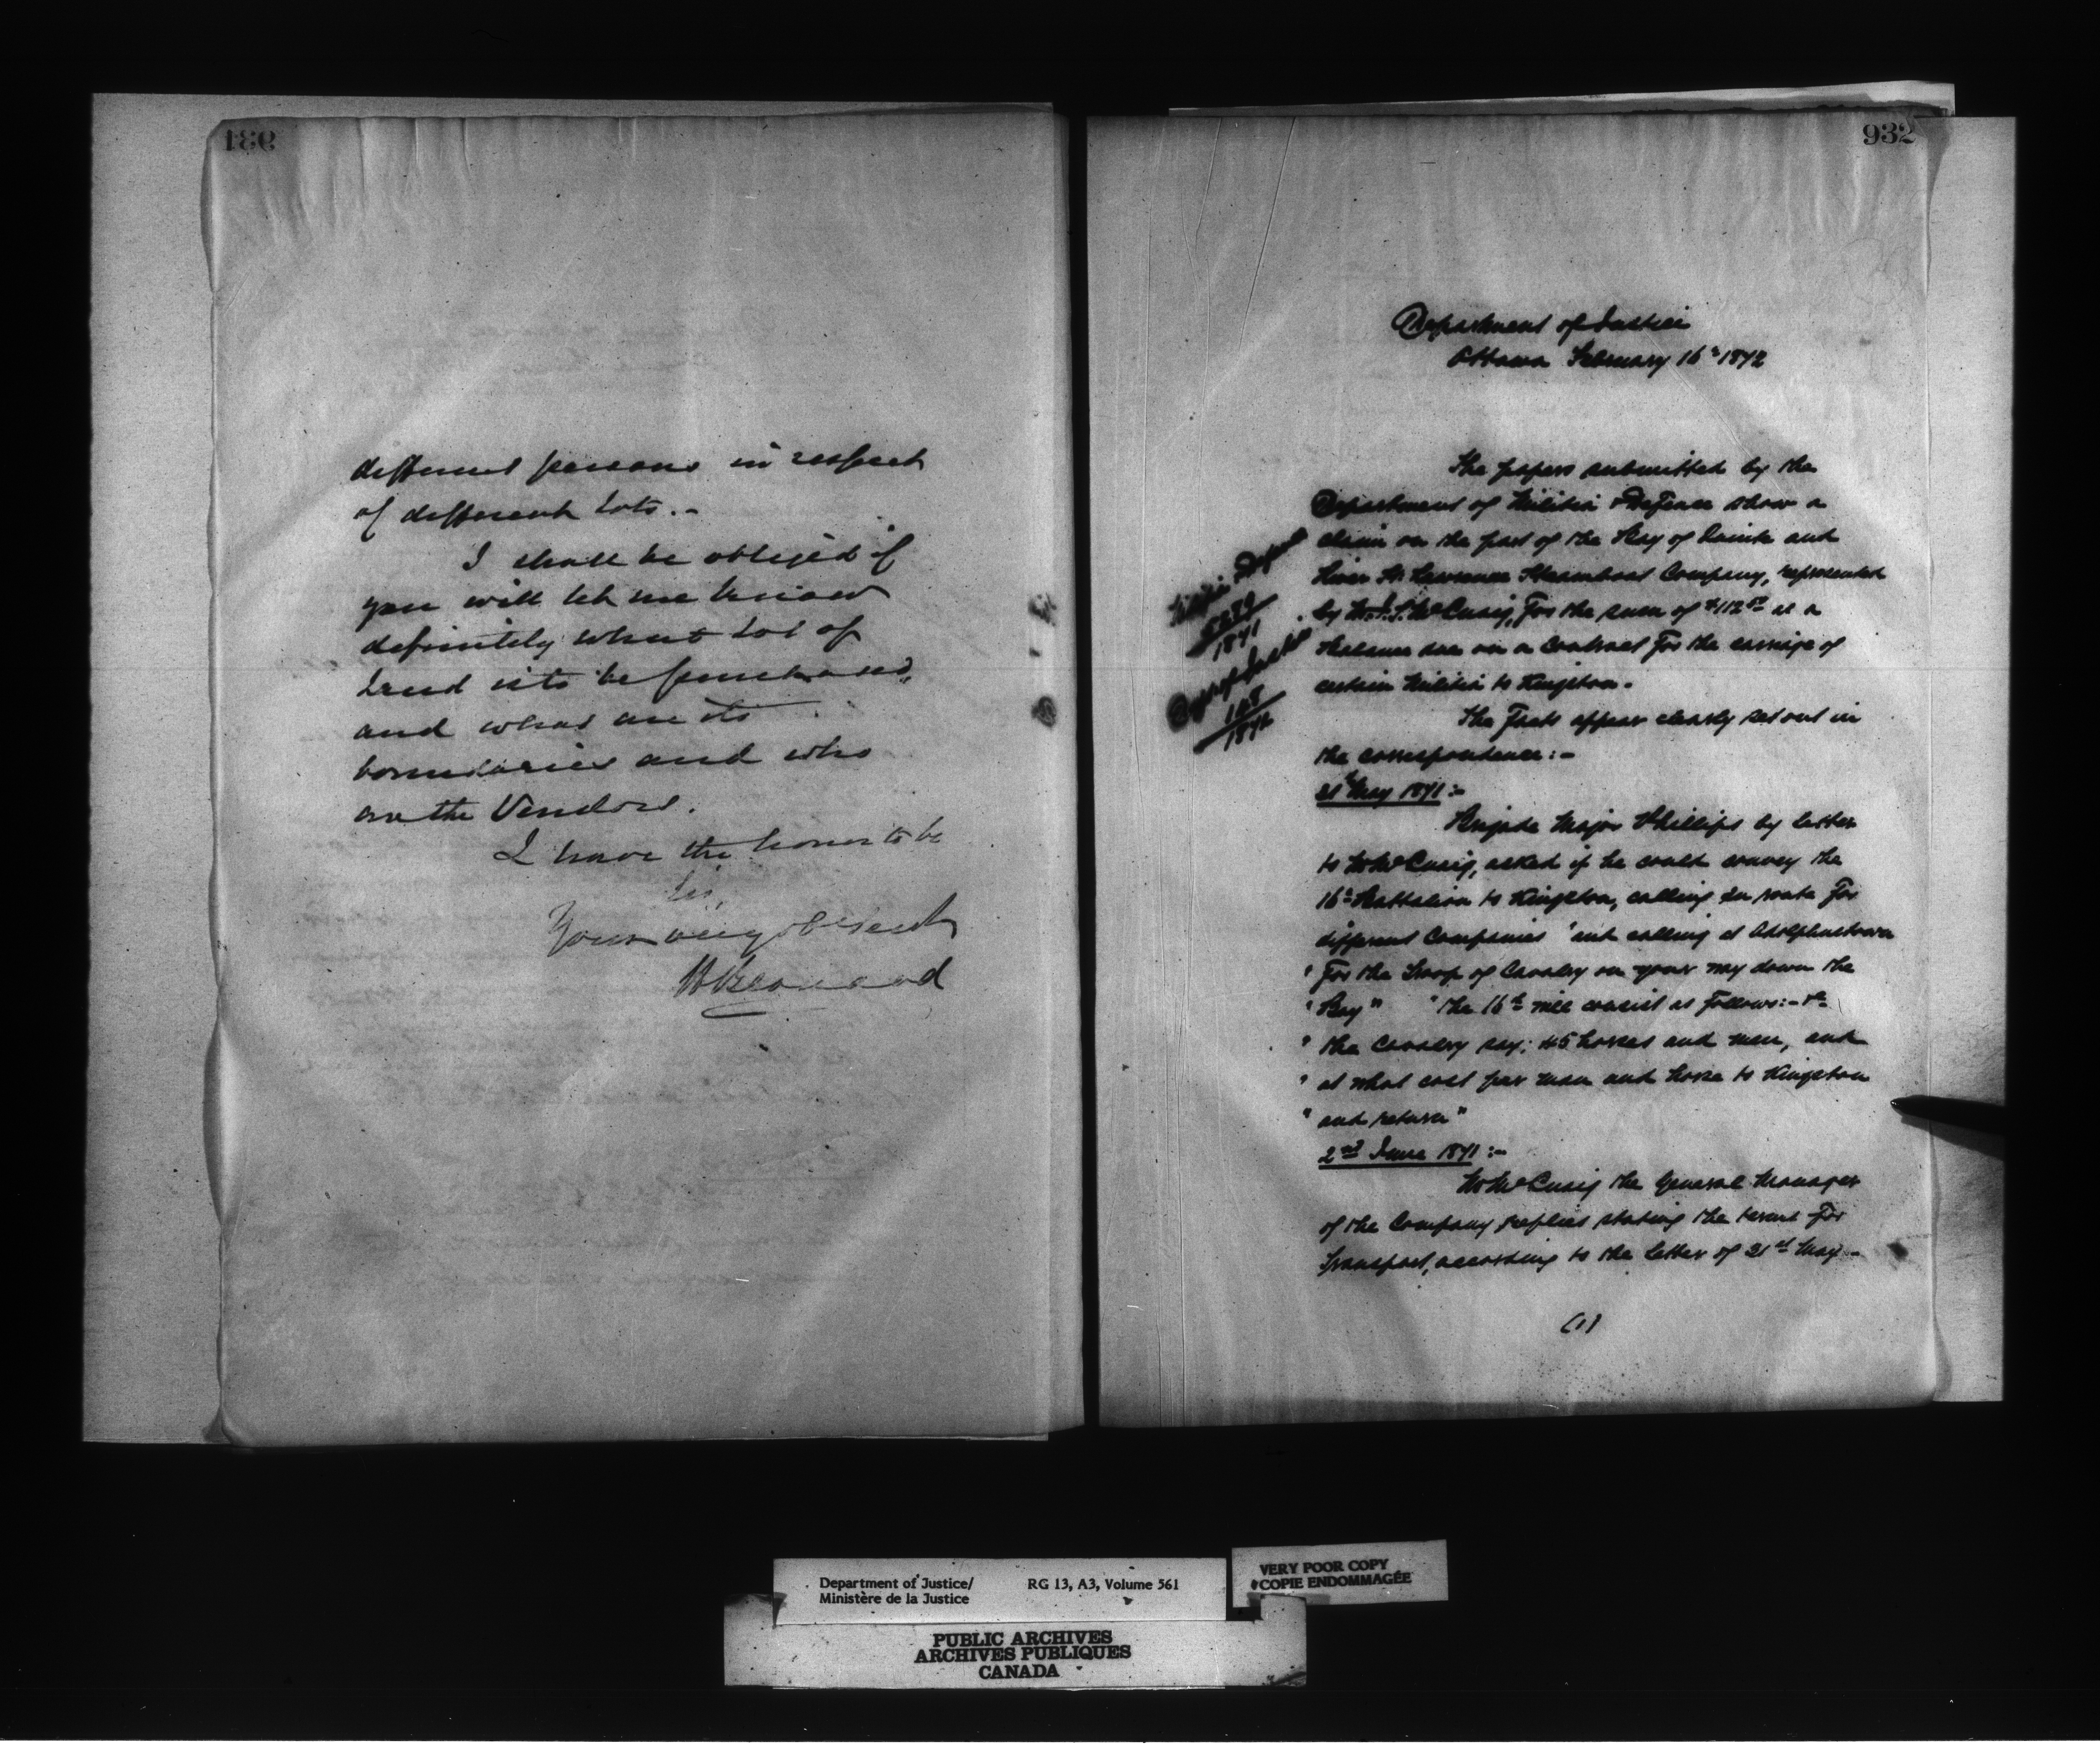 931
different persons in respect
of different lots.-
I shall be obliged if
you will let me know
definitely what lot of
land is to be purchased,
and what are its
boundaries and who
are the Vendors.
I have the honor to be
Sir,
Your very obedient
H Bernard
932
Department of Justice
Ottawa February 16th 1872
Militia & Defence
1871
Dept of Justice
148
1872
The papers submitted by the
Department of Militia & Defence show a
claim on the part of the Bay of Quinte and
River St. Lawrence Steamboat Company, represented
by Mr. McCuaig, for the sum of $112 as a
Balance due on a Contract for the carriage of
certain Militia to Kingston.
The facts appear clearly set out in
the correspondence:-
31st May 1871:-
Brigade Major Phillips by letter
to Mr McCuaig, asked if he could convey the
16th Battalion to Kingston, calling en route for
different Companies "and calling at Adolphustown
" for the Troop of Cavalry on your way down the
" Bay" "The 16th will consist as follows:- &c
" the Cavalry say; 45 horses and men, and
" at what cost per man and horse to Kingston
" and return"
2nd June 1871:-
Mr McCuaig the General Manager
of the Company replies stating the terms for
Transport, according to the letter of 31st May-
(1)
Department of Justice/
Ministère de la Justice
RG 13, A3, Volume 561
VERY POOR COPY
COPIE ENDOMMAGÉE
PUBLIC ARCHIVES
ARCHIVES PUBLIQUES
CANADA